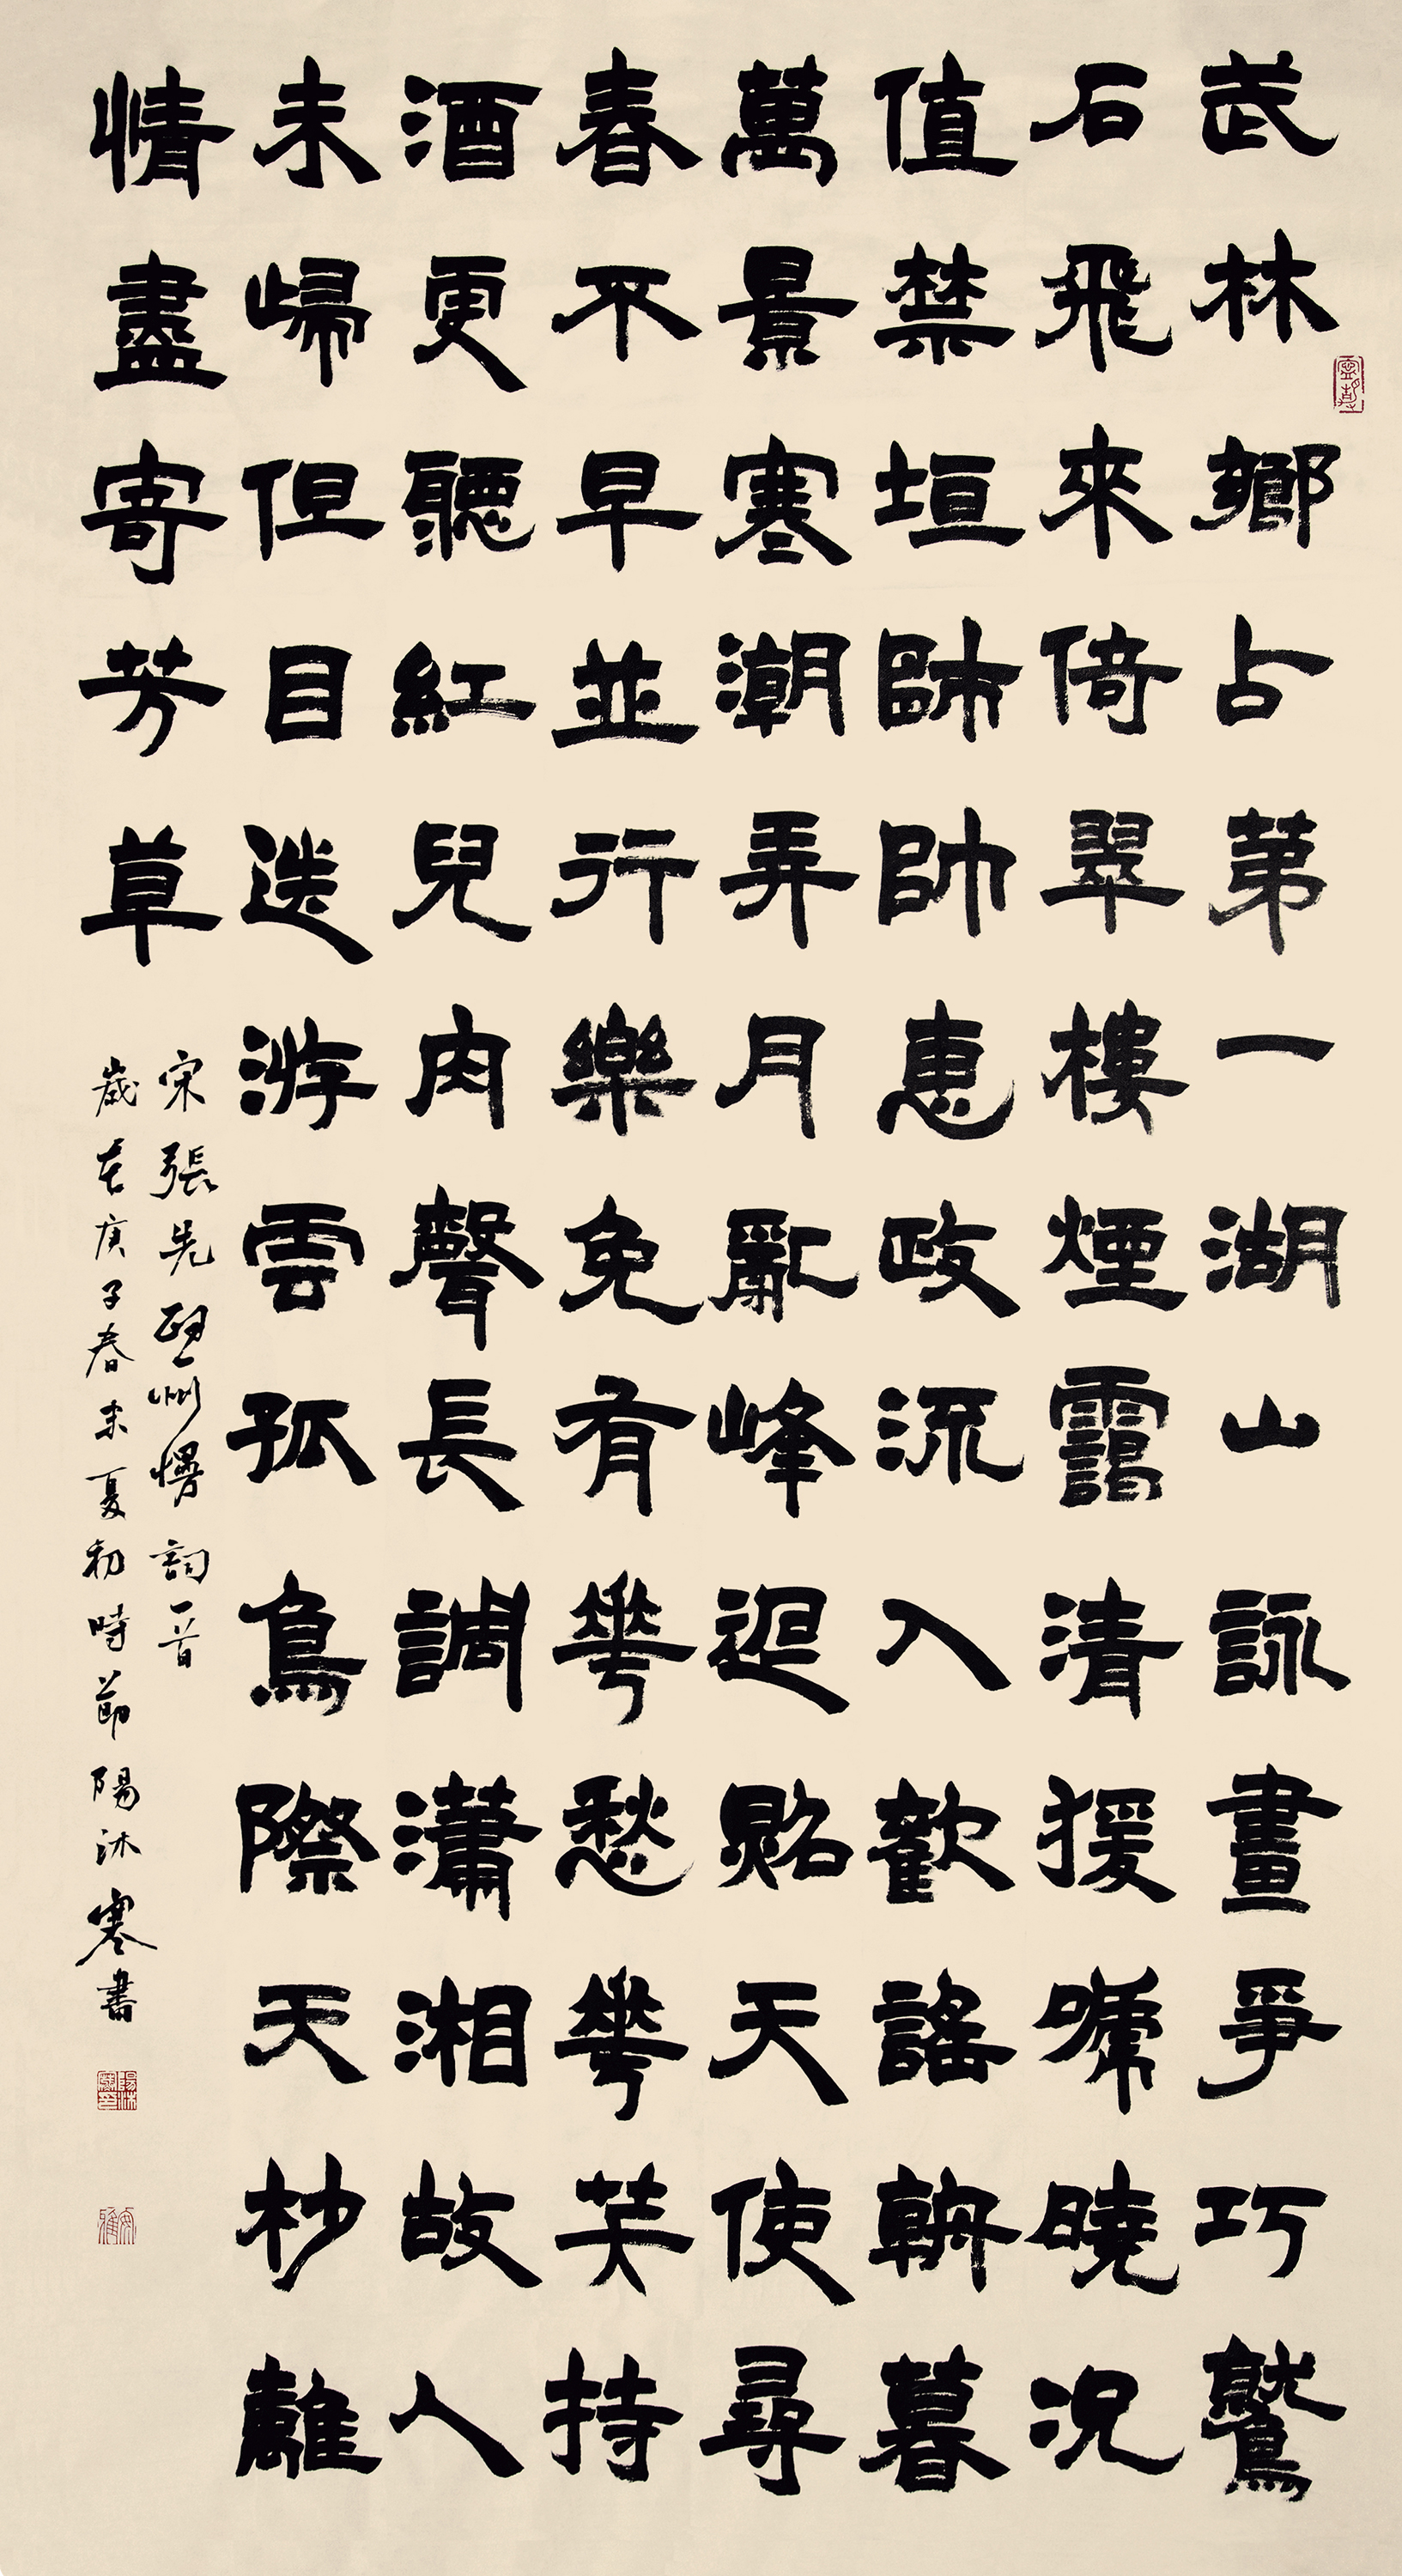 武林鄉占第一湖山詠畫爭巧鷲
石飛來倚翠樓煙靄清猨嗁曉況
值禁垣師帥惠政流入歡謠朝暮
萬景寒潮弄月亂峰迴照天使尋
春不早並行樂免有華愁華笑持
酒更聽紅兒肉聲長調瀟湘故人
未歸但目送游雲孤鳥際天杪離
情盡寄芳草
宋張先熙州慢詞一首
歲在庚子春末夏初時節陽沐寒書